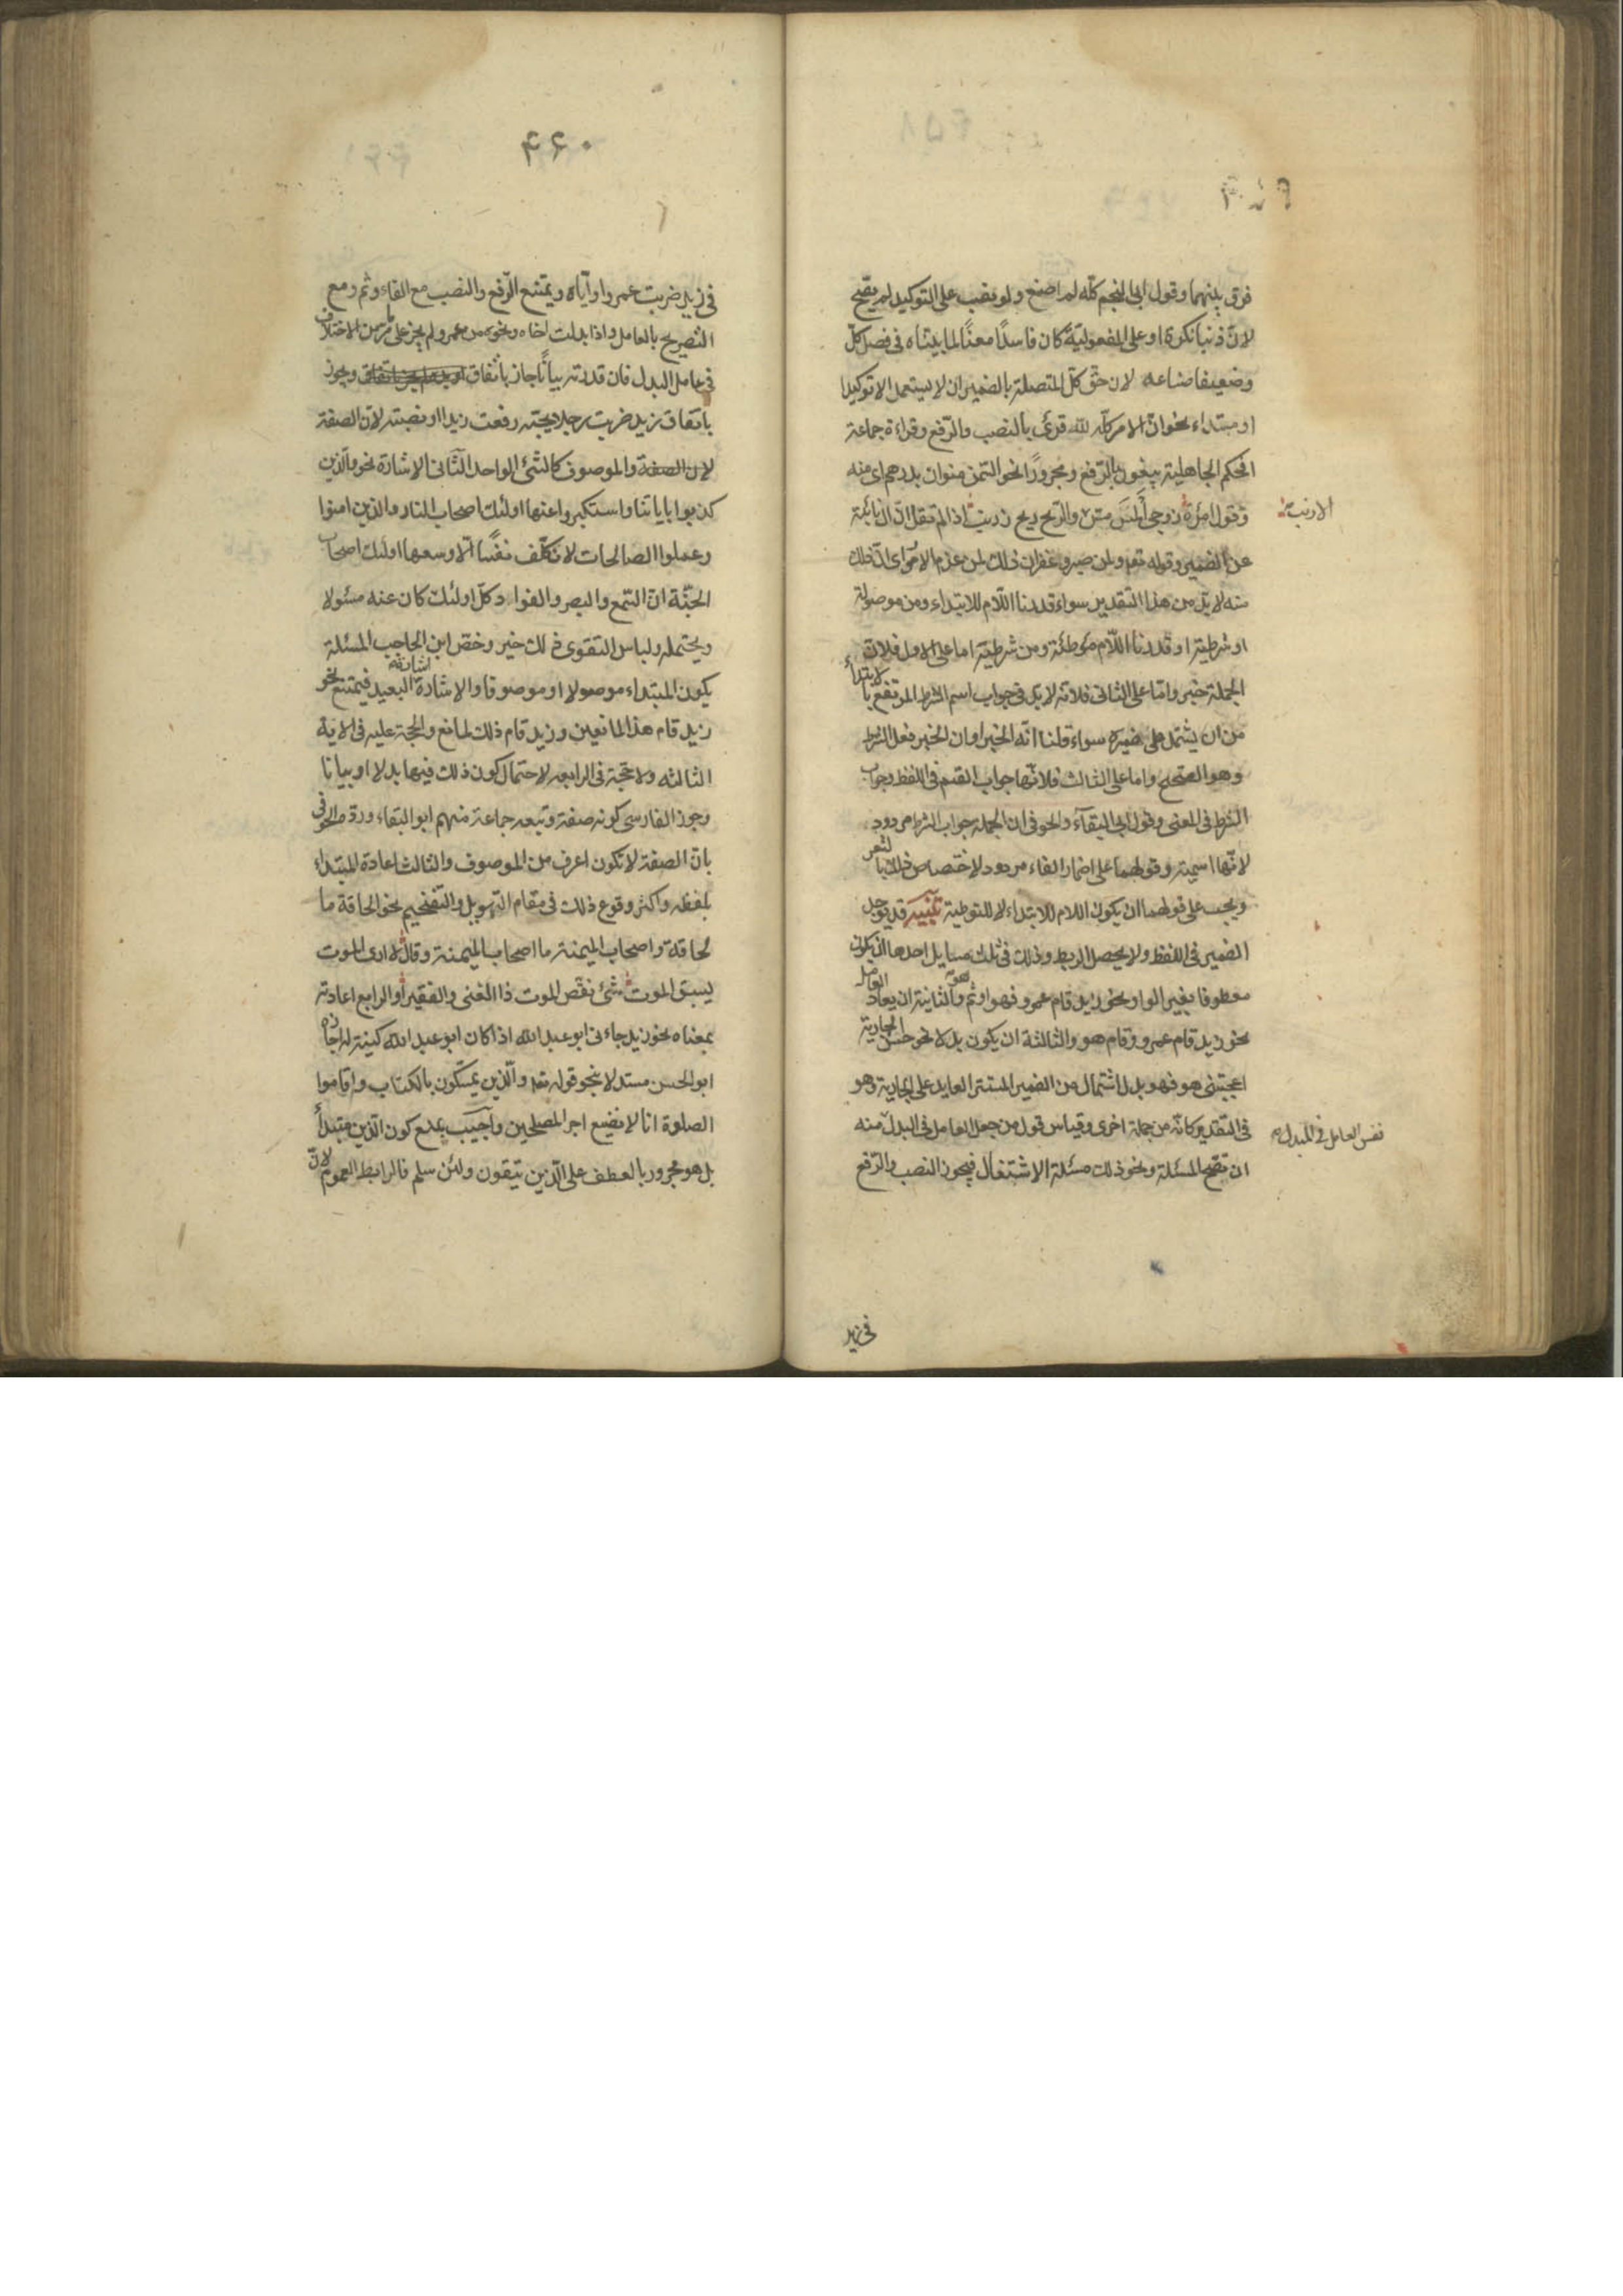 ۴۵۹
فرق بينهما وقول ابى النجم كلّه لم اصنع ولو نصب على التوكيد لم يصحّ
لانّ ذنبا نكرة او على المفعوليّة كان فاسدًا معنًا لما بيّناه فى فصل كلّ
وضعيفا صناعه لان حقّ كلّ المتصلة بالضمير ان لا يستعمل الا توكيدا
او مبتداء نحو انّ الامر كلّه لله قرئ بالنصب والرّفع وقراءة جماعة
افحكم الجاهلية يبغون بالرّفع ومجرورًا نحو السّمن منوان بدرهم اى منه
وقول امرأة زوجى المسّ مسّ والرّيح ريح زرنب اذا لم نقل انّ ال نائبة
الارنب
عن الضمير وقوله تعم ولمن صبر وغفر ان ذلك لمن عزم الامور اى انّ ذلك
منه لا بدّ من هذا التقدير سواء قدرنا اللّام للابتداء ومن موصولة
او شرطية او قدرنا اللّام موطئة ومن شرطيّة اما على الاول فلانّ
الجملة خبر وامّا على الثانى فلانّه لا بدّ فى جواب اسم الشرط المرتفع بالابتداء
من ان يشتمل على ضميره سواء قلنا انّه الخبر او ان الخبر فعل الشرط
وهو الصّحيح واما على الثالث فلانّها جواب القسم فى اللفظ وجواب
الشرط فى المعنى وقول ابى البقآء والحوفى ان الجملة جواب الشرط مردود
لانّها اسمية وقولهما على اضمار الفاء مردود لاختصاص ذلك بالشعر
ويجب على قولهما ان يكون اللام للابتداء لا للتوطية تنبيه قد يوجد
الضمير فى اللفظ ولا يحصل الربط وذلك فى ثلث مسايل احدها ان يكون
معطوفا بغير الواو نحو زيد قام عمرو فهو او ثمّ هو والثانية ان يعاد العامل
نحو زيد قام عمرو وقام هو والثالثة ان يكون بدلا نحو حسن الجارية
اعجبتنى هو فهو بدل اشتمال من الضمير المستتر العايد على الجارية وهو
فى التقدير كانّه من جملة اخرى وقياس قول من جعل العامل فى البدل منه
نفس العامل فى المبدل
ان تصحّ المسئلة ونحو ذلك مسئلة الاشتغال فيجوز النصب والرّفع
فى زيد
۴۶۰
فى زيد ضربت عمروا وايّاه ويمتنع الرّفع والنصب مع الفاء وثم ومع
التصريح بالعامل واذا ابدلت اخاه ونحوه من عمرو لم يجز على ما مرّ من الاختلاف
فى عامل البدل فان قدرته بيانًا جاز باتفاق ويجوز
باتفاق زيد ضربت رجلا يحبّه رفعت زيدا او نصبته لانّ الصفة
لان الصفة والموصوف كالشئ الواحد الثّانى الاشارة نحو والّذين
كذبوا باياتنا واستكبروا عنها اولئك اصحاب النار والذين امنوا
وعملوا الصالحات لا نكلّف نفسًا الّا وسعها اولئك اصحاب
الجنّة انّ السّمع والبصر والفواد كلّ اولئك كان عنه مسئولا
ويحتمله ولباس التقوى ذلك خير وخصّ ابن الحاجب المسئلة
يكون المبتداء موصولا او موصوفا والاشارة اشارة البعيد فيمتنع نحو
زيد قام هذا لمانعين وزيد قام ذلك لمانع والحجة عليه فى الاية
الثالثه ولا حجّة فى الرابعه لاحتمال كون ذلك فيها بدلا او بيانا
وجوز الفارسى كونه صفة وتبعه جماعة منهم ابو البقاء وردّه الحوفى
بانّ الصفة لا تكون اعرف من الموصوف والثالث اعادة المبتداء
بلفظه واكثر وقوع ذلك فى مقام التّهويل والتّفخيم نحو الحاقة ما
لحاقة واصحاب الميمنة ما اصحاب الميمنة وقال لا ارى الموت
يسبق الموت شئ نغّص الموت ذا الغنى والفقير او الرابع اعادته
بمعناه نحو زيد جاءنى ابو عبد الله اذا كان ابو عبد الله كنية له اجازه
ابو الحسن مستدلا بنحو قوله تعم والّذين يمسّكون بالكتاب واقاموا
الصلوة انا لا نضيع اجر المصلحين واجيب بمنع كون الّذين مبتدأ
بل هو مجرور بالعطف على الّذين يتّقون ولئن سلم فالرابط العموم لانّ